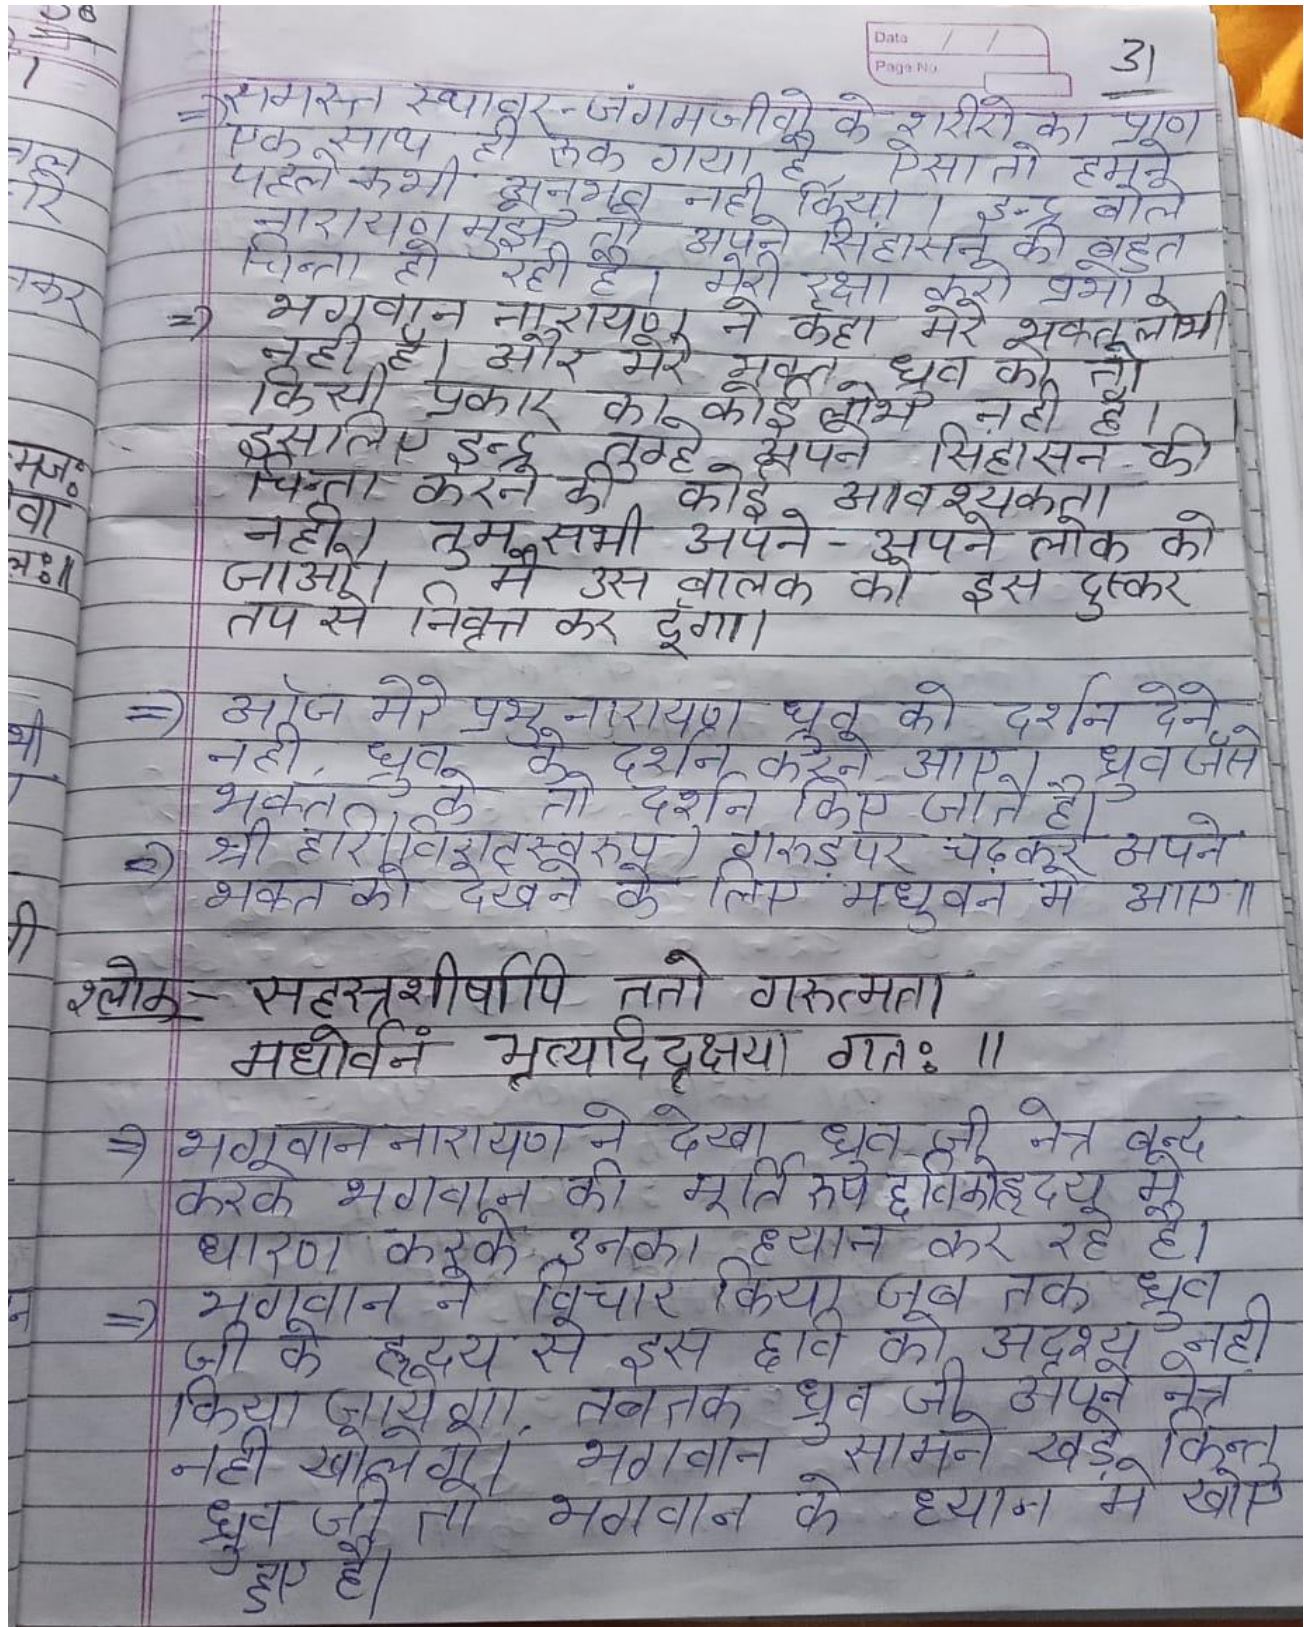 31
Date / /
Page No.
⇒ समस्त स्थावर-जंगमजीवो के शरीरो का प्राण
एक साथ ही रूक गया है ऐसा तो हमने
पहले कभी अनुभव नही किया। इन्द्र बोले
नारायण मुझे तो अपने सिंहासन की बहुत
चिन्ता हो रही है। मेरी रक्षा करो प्रभो।
⇒ भगवान नारायण ने कहा मेरे भक्त लोभी
नही है। और मेरे भक्त ध्रुव को तो
किसी प्रकार का कोई लोभ नही है।
इसलिए इन्द्र तुम्हे अपने सिंहासन की
चिन्ता करने की कोई आवश्यकता
नही। तुम सभी अपने-अपने लोक को
जाओ। मै उस बालक को इस दुस्कर
तप से निवृत्त कर दूँगा।
⇒ ऑज मेरे प्रभु नारायण ध्रुव को दर्शन देने
नही, ध्रुव के दर्शन करने आए। ध्रुव जैसे
भक्त के तो दर्शन किए जाते है।
⇒ श्री हरि विराटस्वरुप। गरुड़ पर चढ़कर अपने
भक्त को देखने के लिए मधुवन मे आए॥
श्लोक- सहस्त्रशीर्षापि ततो गरुत्मता
मधोर्वनं भृत्यादिदृक्षया गतः॥
⇒ भगवान नारायण ने देखा ध्रुव जी नेत्र बन्द
करके भगवान की मूर्ति रुप छविकोहृदय मे
धारण करके उनका ध्यान कर रहे है।
⇒ भगवान ने विचार किया जब तक ध्रुव
जी के हृदय से इस छवि को अदृश्य नही
किया जायेगा, तबतक ध्रुव जी अपने नेत्र
नही खोलेगे। भगवान सामने खड़े किन्तु
ध्रुव जी तो भगवान के ध्यान मे खोए
हुए है।